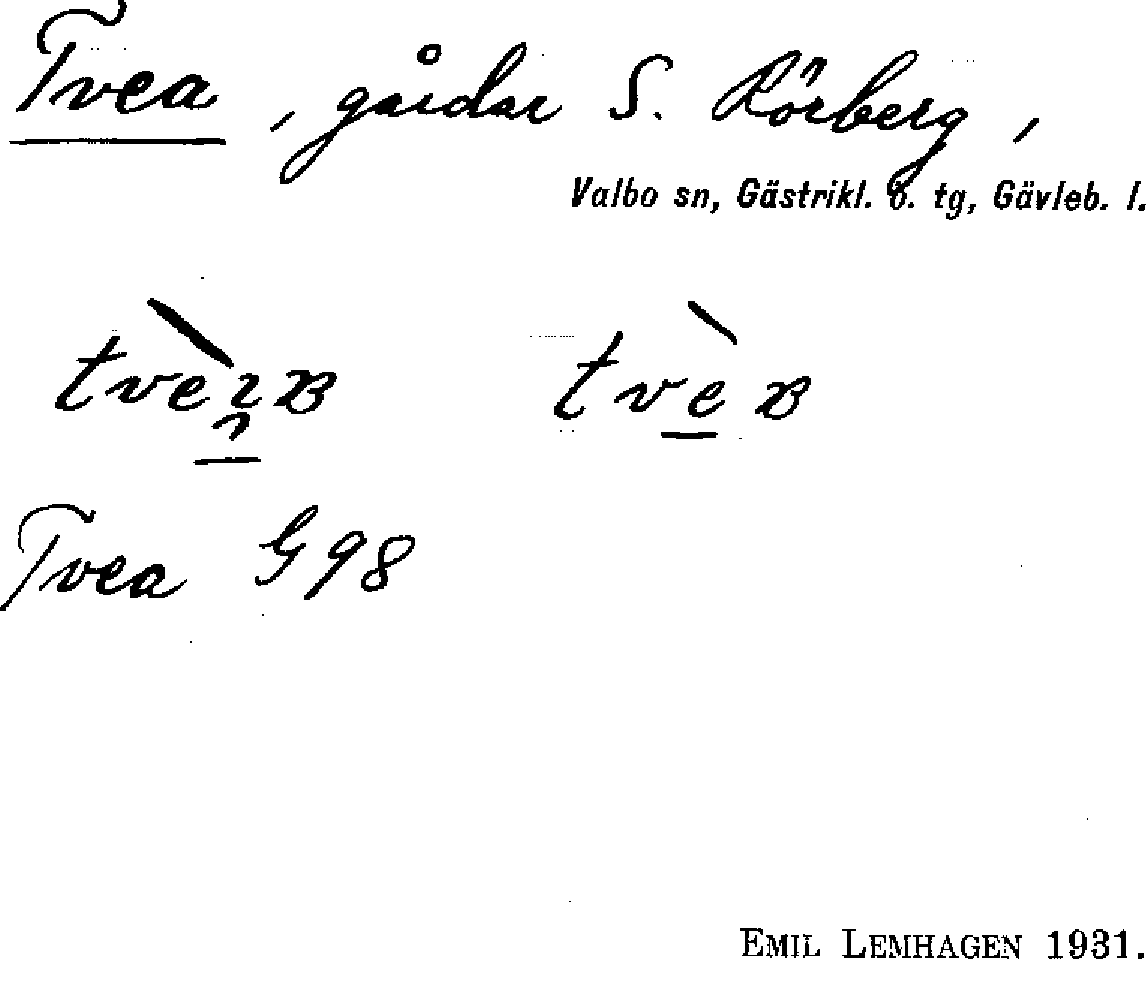 Tvea, gårdar S. Rörberg,
Valbo sn, Gästrikl. ö. tg, Gävleb. l.
Tvea G98
EMIL LEMHAGEN 1931.